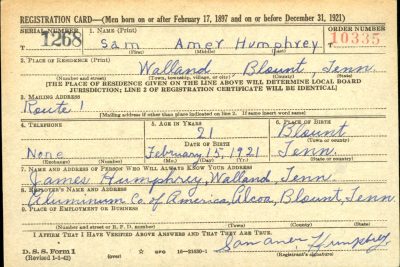 REGISTRATION CARD—(Men born on or after February 17, 1897 and on or before December 31, 1921)
SERIAL NUMBER 1. NAME (Print) ORDER NUMBER
1268 Sam Amer Humphrey 10335
(First) (Middle) (Last)
2. PLACE OF RESIDENCE (Print)
Walland Blount, Tenn.
(Number and street) (Town, township, village, or city) (County) (State)
[THE PLACE OF RESIDENCE GIVEN ON THE LINE ABOVE WILL DETERMINE LOCAL BOARD
JURISDICTION; LINE 2 OF REGISTRATION CERTIFICATE WILL BE IDENTICAL]
3. MAILING ADDRESS
Route 1
[Mailing address if other than place indicated on line 2. If same insert word same]
4. TELEPHONE 5. AGE IN YEARS 6. PLACE OF BIRTH
21 Blount
DATE OF BIRTH (Town or county)
None February 15, 1921 Tenn.
(Exchange) (Number) (Mo.) (Day) (Yr.) (State or country)
7. NAME AND ADDRESS OF PERSON WHO WILL ALWAYS KNOW YOUR ADDRESS
James Humphrey, Walland, Tenn.
8. EMPLOYER'S NAME AND ADDRESS
Aluminum Co. of America, Alcoa, Blount, Tenn.
9. PLACE OF EMPLOYMENT OR BUSINESS
(Number and street or R. F. D. number) (Town) (County) (State)
I AFFIRM THAT I HAVE VERIFIED ABOVE ANSWERS AND THAT THEY ARE TRUE.
D. S. S. Form 1 Sam amer Humphrey
(Revised 1-1-42) (over) GPO 16—21630-1 (Registrant's signature)